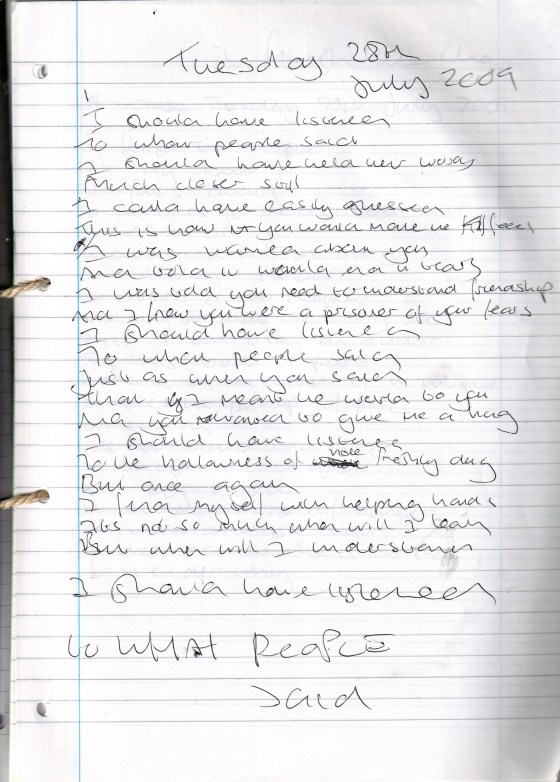 Tuesday 28th
July 2009
I should have listened
To what people said
I should have held their words
Much closer still
I could have easily guessed
This is how you would make me feel
I was warned about you
And told it would end in tears
I was told you need to understand friendship
And I knew you were a prisoner of your fears
I should have listened
To what people said
Just as when you said
That I meant the world to you
And you wanted to give me a hug
I should have listened
To the hollowness of hole freshly dug
But once again
I find myself with helping hands
Its not so much when will I learn
But when will I understand
I should have listened
to WHAT PEOPLE
said